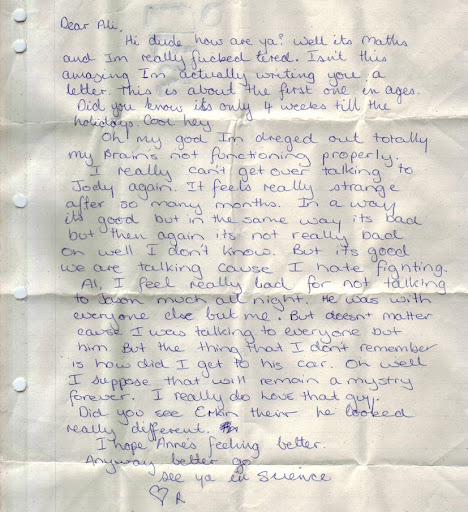 Dear Ali,
Hi dude how are ya? Well its Maths
and Im really fucked tered. Isnt this
amazing Im actually writing you a
letter. This is about the first one in ages.
Did you know its only 4 weeks till the
holidays. Cool hey
Oh! my god Im dreged out totally
my Brains not functioning properly.
I really can't get over talking to
Jody again. It feels really strange
after so many months. In a way
its good but in the same way its bad
but then again its not really bad
oh well I don't know. But its good
we are talking cause I hate fighting.
Al, I feel really bad for not talking
to Jason much all night. He was with
everyone else but me. But doesnt matter
cause I was talking to everyone but
him. But the thing that I don't remember
is how did I get to his car. Oh well
I suppose that will remain a mystry
forever. I really do love that guy.
Did you see Erkin their he looked
really different.
I hope Anne's feeling better.
Anyway better go
see ya in Science
♡ R